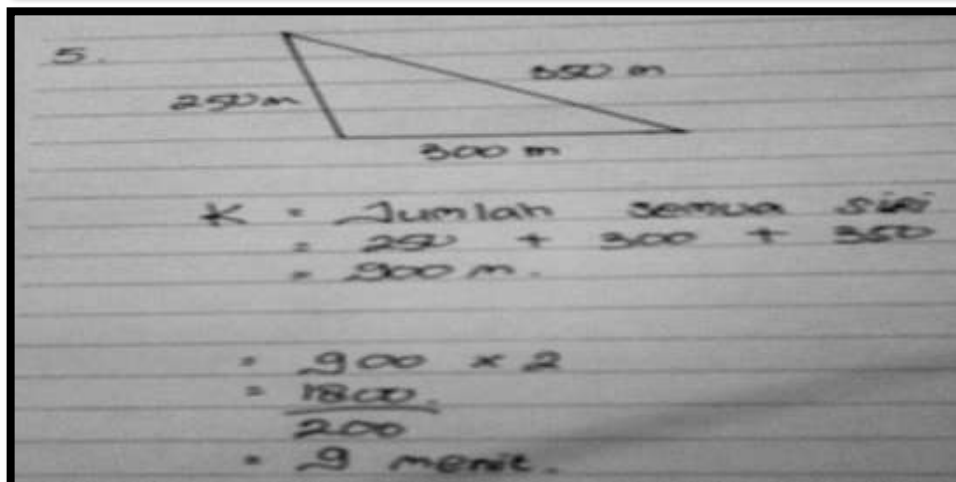 5.
350 m
250 m
300 m
K = Jumlah semua sisi
= 250 + 300 + 350
= 900 m.
= 900 x 2
= 1800.
200
= 9 menit.